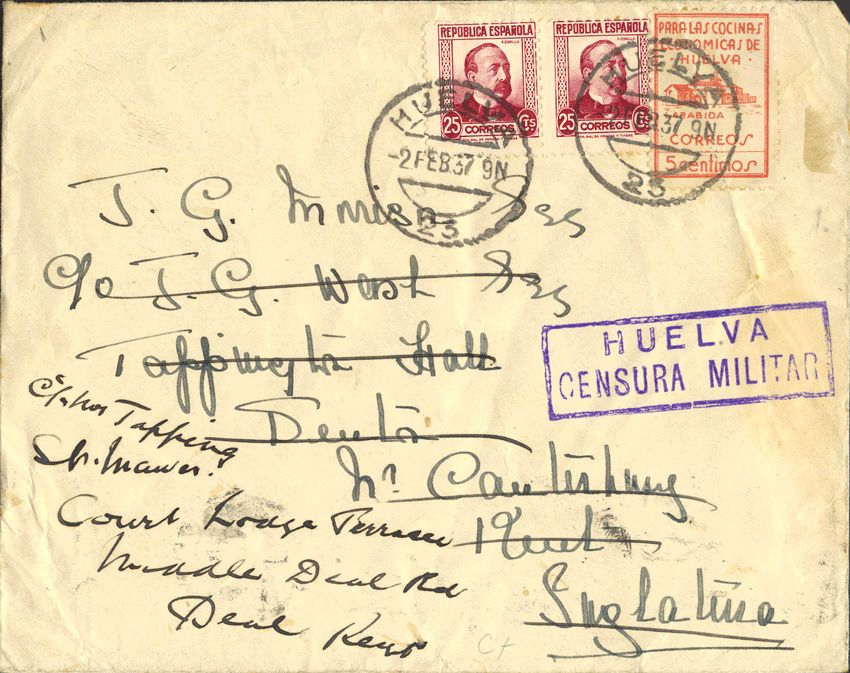 REPÚBLICA ESPAÑOLA
25 CTS
CORREOS
REPÚBLICA ESPAÑOLA
25 CTS
CORREOS
PARA LAS COCINAS
ECONOMICAS DE
HUELVA
RABIDA
CORREOS
5 centimos
HUELVA
-2 FEB.37 9N
23
HUELVA
FEB.37 9N
23
J. G. Esq
c/o J. G. Wash Esq
Tappington Hall
Denton
Nr. Canterbury
Kent
Inglaterra
HUELVA
CENSURA MILITAR
Tapping
Court Lodge Terrace
Middle Deal Rd
Deal Kent